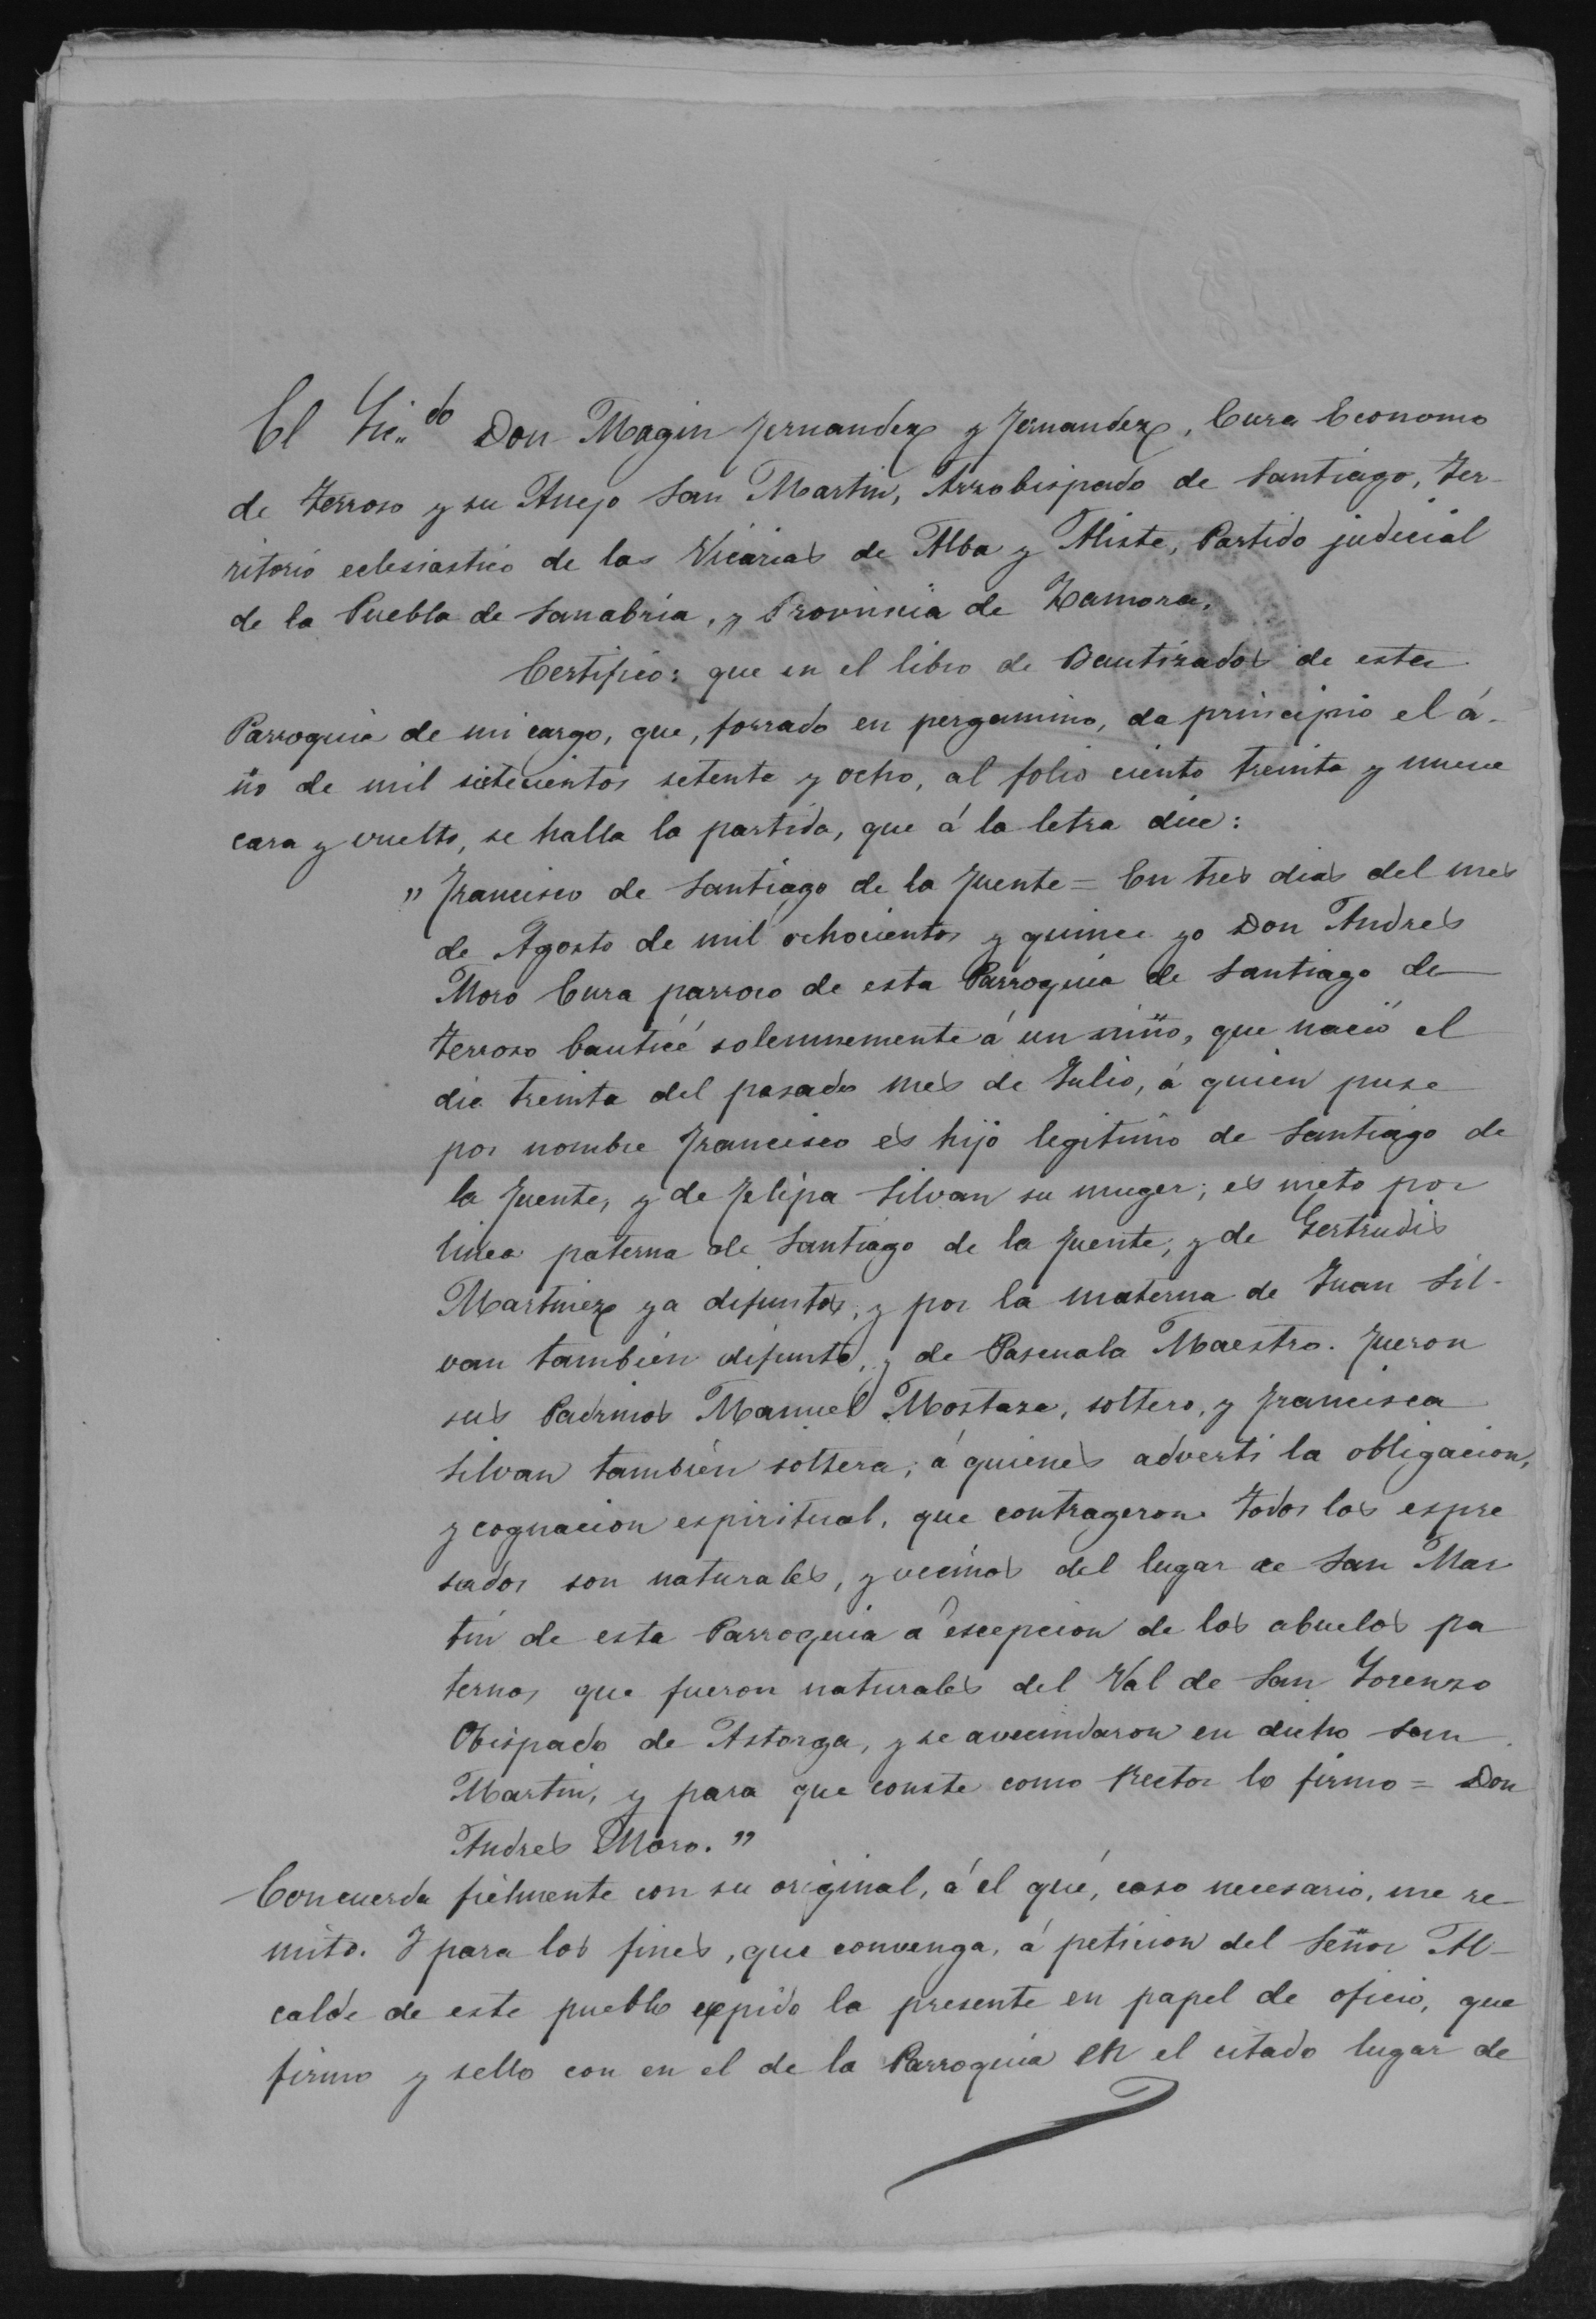 El Lic.do Don Magin Fernandez y Fernandez, Cura Economo
de Terroso y su Anejo San Martin, Arzobispado de Santiago, Ter-
ritorio eclesiastico de las Vicarias de Alba y Aliste, Partido judicial
de la Puebla de Sanabria, y Provincia de Zamora.
Certifico: que en el libro de Bautizados de esta
Parroquia de mi cargo, que, forrado en pergamino, da principio el á-
ño de mil sietecientos setenta y ocho, al folio ciento treinta y nueve
cara y vuelto, se halla la partida, que á la letra dice:
" Francisco de Santiago de la Fuente = En tres dias del mes
de Agosto de mil ochocientos y quince yo Don Andres
Moro Cura parroco de esta Parroquia de Santiago de
Terroso bauticé solemnemente á un niño, que nació el
dia treinta del pasado mes de Julio, á quien puse
por nombre Francisco es hijo legitimo de Santiago de
la Fuente, y de Felipa Silvan su muger; es nieto por
linea paterna de Santiago de la Fuente, y de Gertrudis
Martinez ya difuntos, y por la materna de Juan Sil-
van también difunto, y de Pascuala Maestro. Fueron
sus Padrinos Manuel Mostaza, soltero, y Francisca
Silvan también soltera; á quienes adverti la obligacion,
y cognacion espiritual, que contrageron. Todos los espre
sados son naturales, y vecinos del lugar de San Mar
tin de esta Parroquia á escepcion de los abuelos pa
ternos que fueron naturales del Val de San Lorenzo
Obispado de Astorga, y se avecindaron en dicho San
Martin, y para que conste como Rector lo firmo = Don
Andres Moro. "
Concuerda fielmente con su original, á el qué, caso necesario, me re-
mito. Y para los fines, que convenga, á peticion del Señor Al-
calde de este pueblo expido la presente en papel de oficio, que
firmo y sello con en el de la Parroquia en el citado lugar de